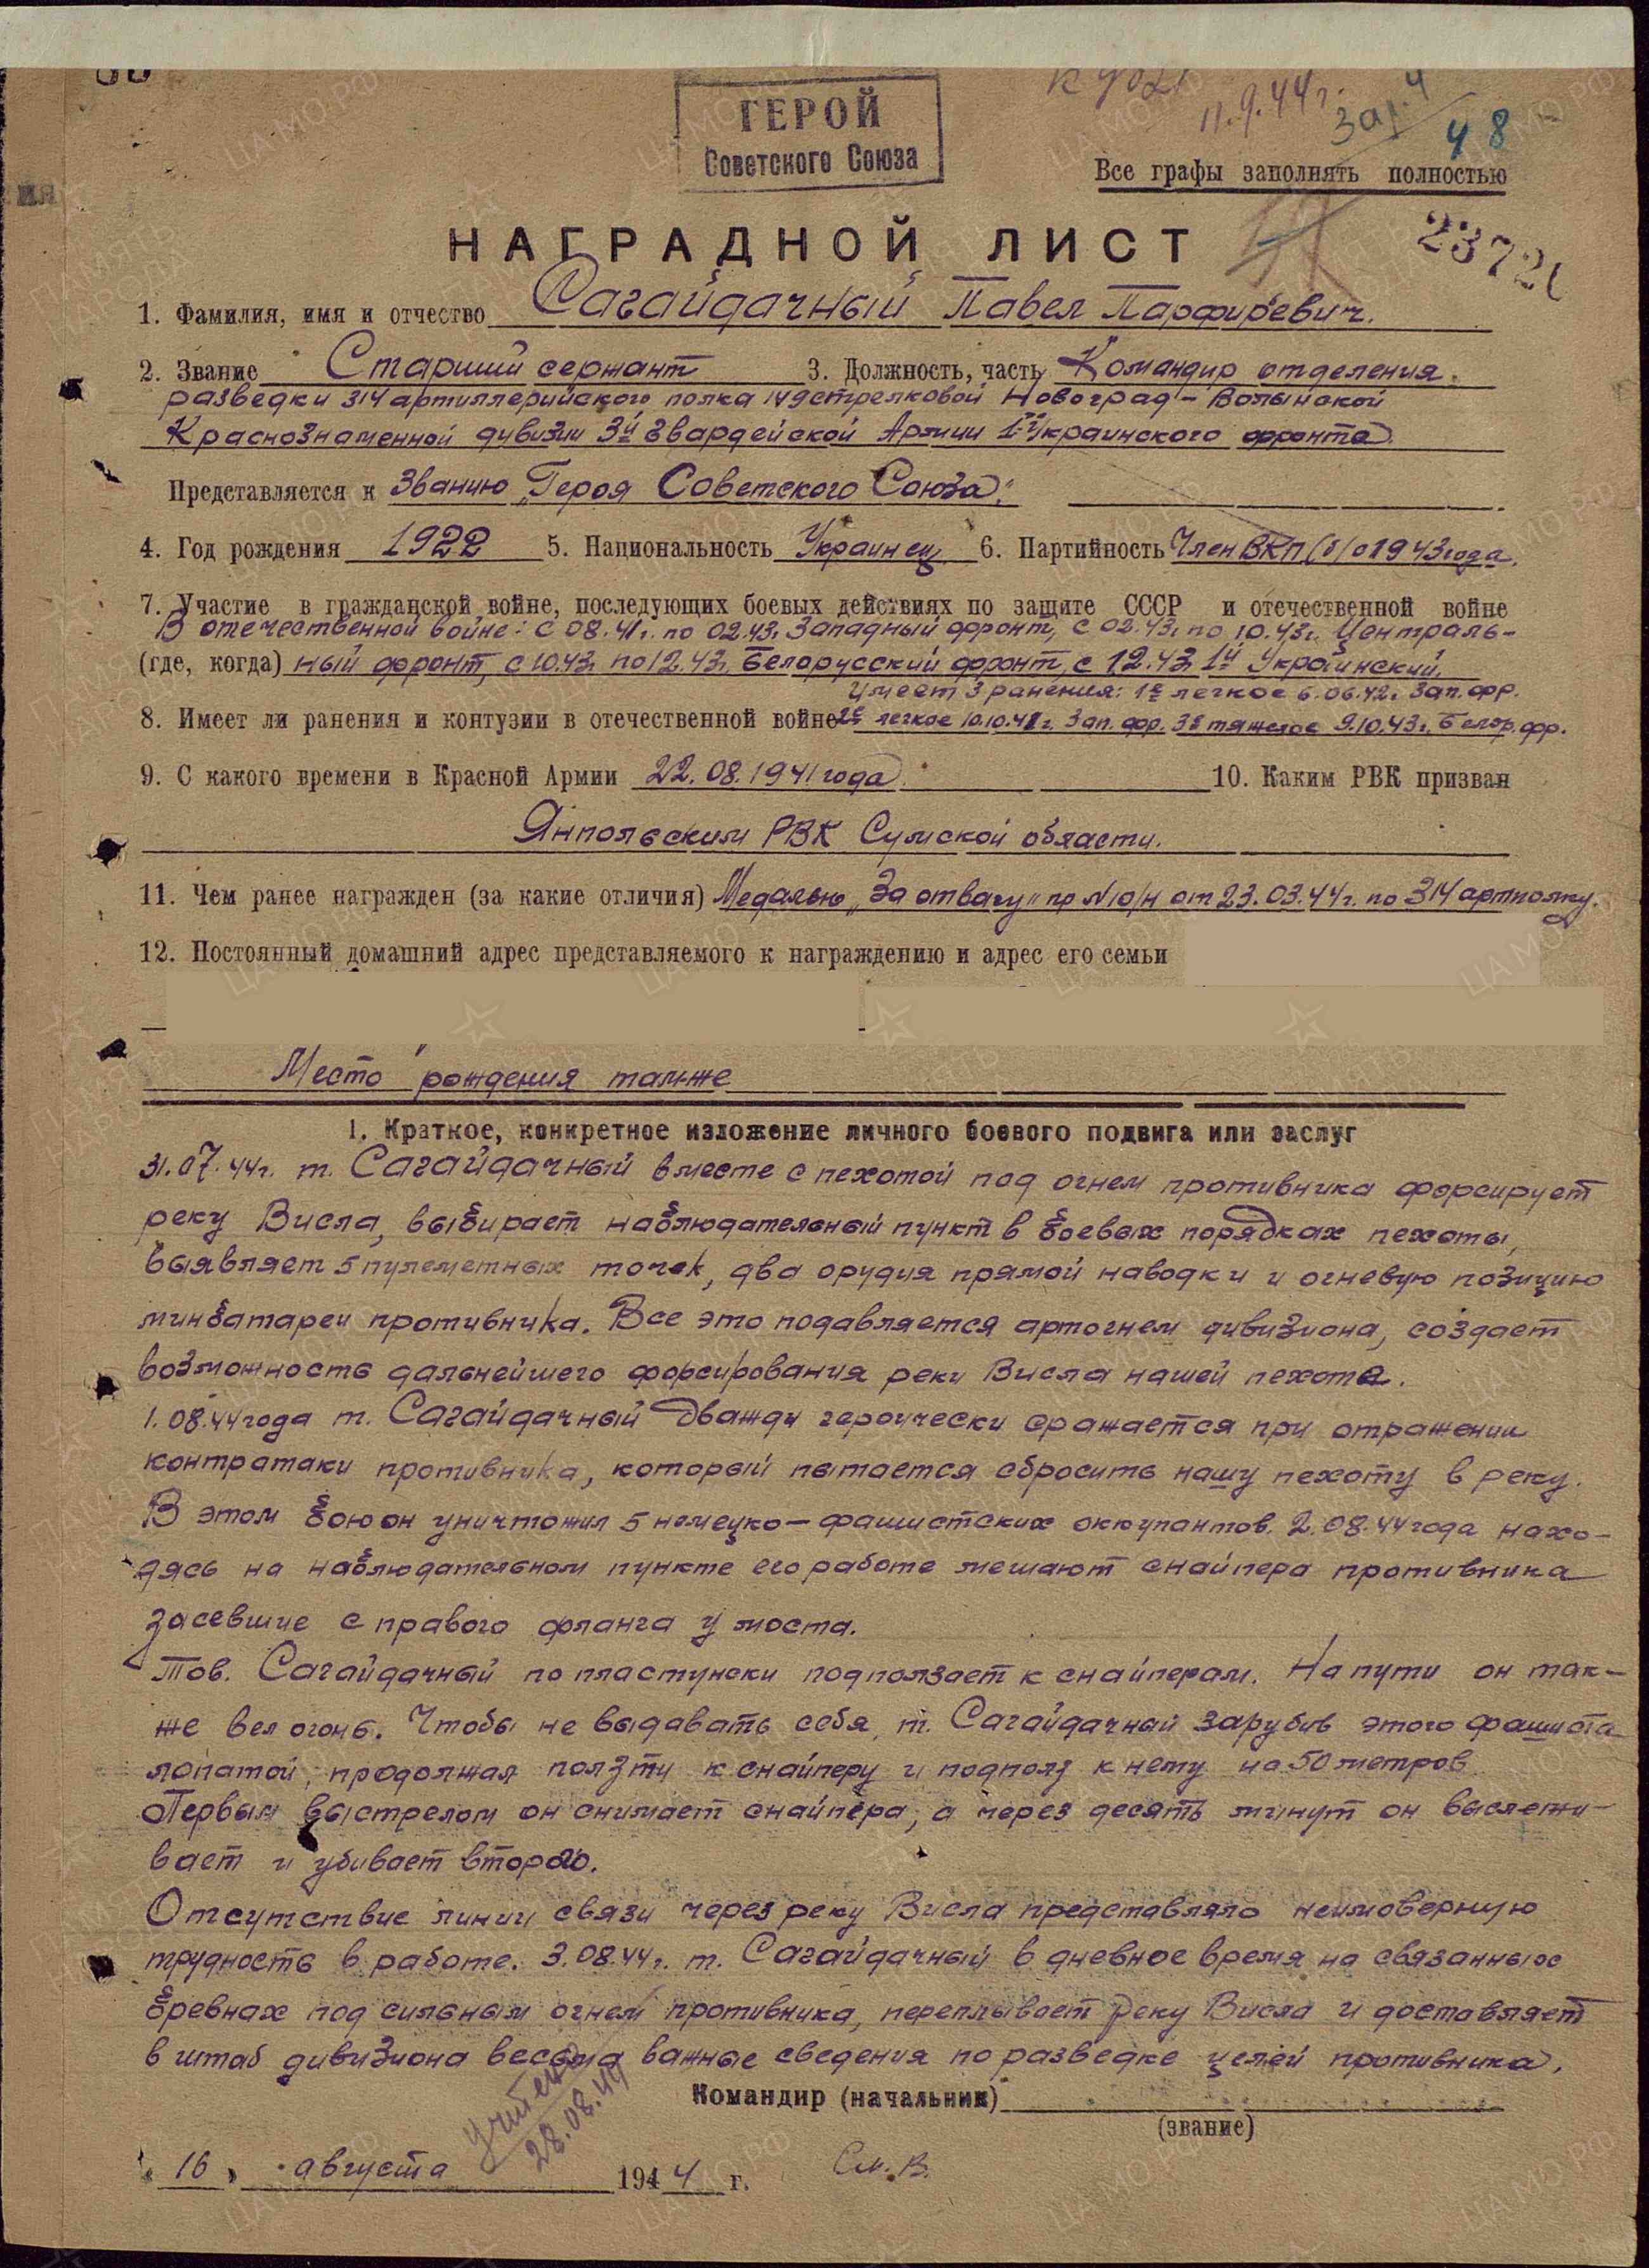 ГЕРОЙ
Советского Союза
11.9.44г.
48
Все графы заполнять полностью
НАГРАДНОЙ ЛИСТ
1. Фамилия, имя и отчество Сагайдачный Павел Парфирьевич.
2. Звание Старший сержант 3. Должность, часть Командир отделения
разведки 314 артиллерийского полка 149 стрелковой Новоград-Волынской
Краснознаменной дивизии 3й Гвардейской Армии 1го Украинского фронта.
Представляется к званию „Героя Советского Союза".
4. Год рождения 1922 5. Национальность Украинец 6. Партийность Член ВКП(б) с 1943 года.
7. Участие в гражданской войне, последующих боевых действиях по защите СССР и отечественной войне
В отечественной войне: с 08.41г. по 02.43г. Западный фронт, с 02.43г. по 10.43г. Централь-
(где, когда) ный фронт, с 10.43г. по 12.43г. Белорусский фронт, с 12.43г. 1й Украинский.
Имеет 3 ранения: 1е легкое 6.06.42г. Зап. фр.
8. Имеет ли ранения и контузии в отечественной войне 2е легкое 10.10.42г. Зап. фр. 3е тяжелое 9.10.43г. Белор. фр.
9. С какого времени в Красной Армии 22.08.1941 года. 10. Каким РВК призван
Янпольским РВК Сумской области.
11. Чем ранее награжден (за какие отличия) Медалью „За отвагу" пр № 10/н от 23.03.44г. по 314 артполку.
12. Постоянный домашний адрес представляемого к награждению и адрес его семьи
Место рождения там-же
1. Краткое, конкретное изложение личного боевого подвига или заслуг
31.07.44г. т. Сагайдачный вместе с пехотой под огнем противника форсирует
реку Висла, выбирает наблюдательный пункт в боевых порядках пехоты,
выявляет 5 пулеметных точек, два орудия прямой наводки и огневую позицию
минбатареи противника. Все это подавляется артогнем дивизиона, создает
возможность дальнейшего форсирования реки Висла нашей пехоте.
1.08.44 года т. Сагайдачный дважды героически сражается при отражении
контратаки противника, который пытается сбросить нашу пехоту в реку.
В этом бою он уничтожил 5 немецко-фашистских оккупантов. 2.08.44 года нахо-
дясь на наблюдательном пункте его работе мешают снайпера противника
засевшие с правого фланга у моста.
Тов. Сагайдачный по пластунски подползает к снайперам. На пути он так-
же вел огонь. Чтобы не выдавать себя, т. Сагайдачный зарубив этого фашиста
лопатой, продолжал ползти к снайперу и подполз к нему на 50 метров.
Первым выстрелом он снимает снайпера, а через десять минут он выслежи-
вает и убивает второго.
Отсутствие линии связи через реку Висла представляло неимоверную
трудность в работе. 3.08.44г. т. Сагайдачный в дневное время на связанных
бревнах под сильным огнем противника, переплывает реку Висла и доставляет
в штаб дивизиона весьма важные сведения по разведке целей противника.
Командир (начальник)
(звание)
28.08.44
„16" августа 1944 г.
См. В.